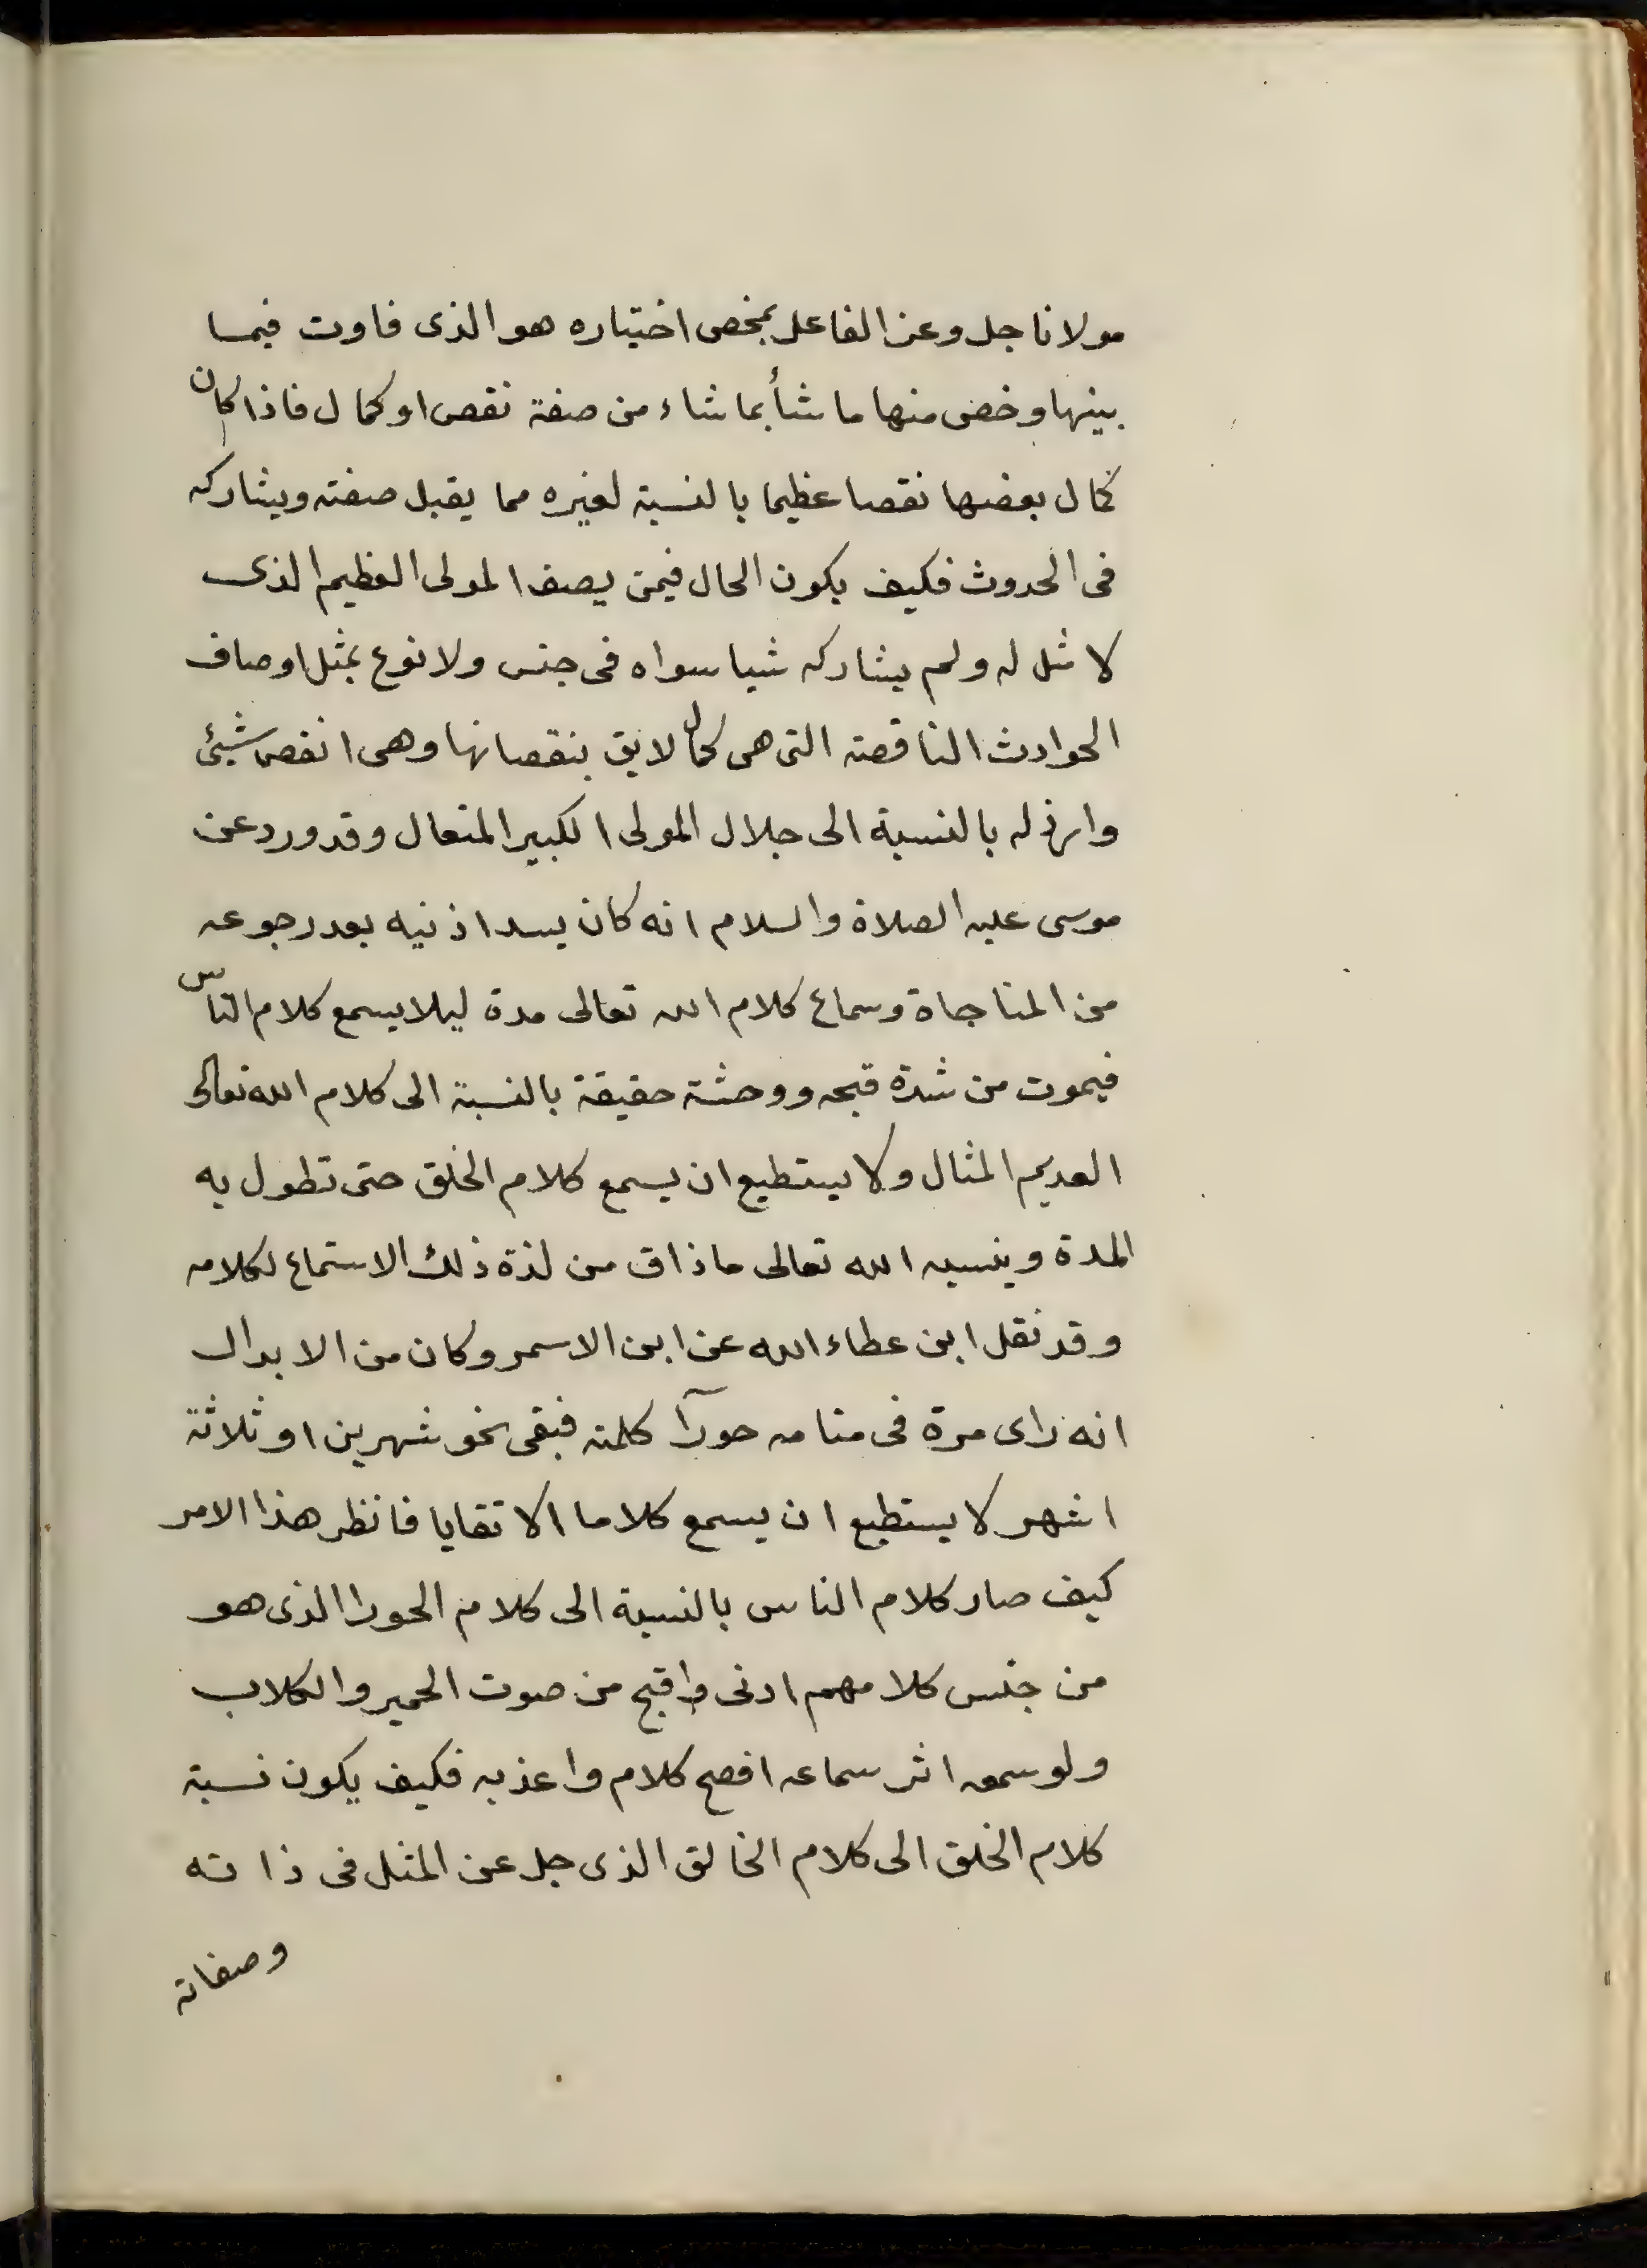 مولانا جل وعز الفاعل بمحض اختياره هو الذى فاوت فيما
بينها وخص منها ما شأ بما شاء من صفة نقص او كمال فاذا كان
كمال بعضها نقصا عظيما بالنسبة لغيره مما يقبل صفته ويشاركه
فى الحدوث فكيف يكون الحال فيمن يصف المولى العظيم الذى
لا مثل له ولم يشاركه شيا سواه فى جنس ولا نوع بمثل اوصاف
الحوادث الناقصة التى هى كمال لايق بنقصانها وهى انقص شيئ
وارذله بالنسبة الى جلال المولى الكبير المتعال وقد ورد عن
موسى عليه الصلاة والسلام انه كان يسد اذنيه بعد رجوعه
من المناجاة وسماع كلام الله تعالى مدة ليلا يسمع كلام الناس
فيموت من شدة قبحه ووحشة حقيقة بالنسبة الى كلام الله تعالى
العديم المثال ولا يستطيع ان يسمع كلام الخلق حتى تطول به
المدة وينسيه الله تعالى ما ذاق من لذة ذلك الاستماع لكلامه
وقد نقل ابن عطاء الله عن ابن الاسمر وكان من الابدال
انه راى مرة فى منامه حورآ كلمته فبقى نحو شهرين او ثلاثة
اشهر لا يستطيع ان يسمع كلاما الا تقايا فانظر هذا الامر
كيف صار كلام الناس بالنسبة الى كلام الحورا الذى هو
من جنس كلامهم ادنى واقبح من صوت الحمير والكلاب
ولو سمعه اثر سماعه افصح كلام واعذبه فكيف يكون نسبة
كلام الخلق الى كلام الخالق الذى جل عن المثل فى ذاته
وصفاته